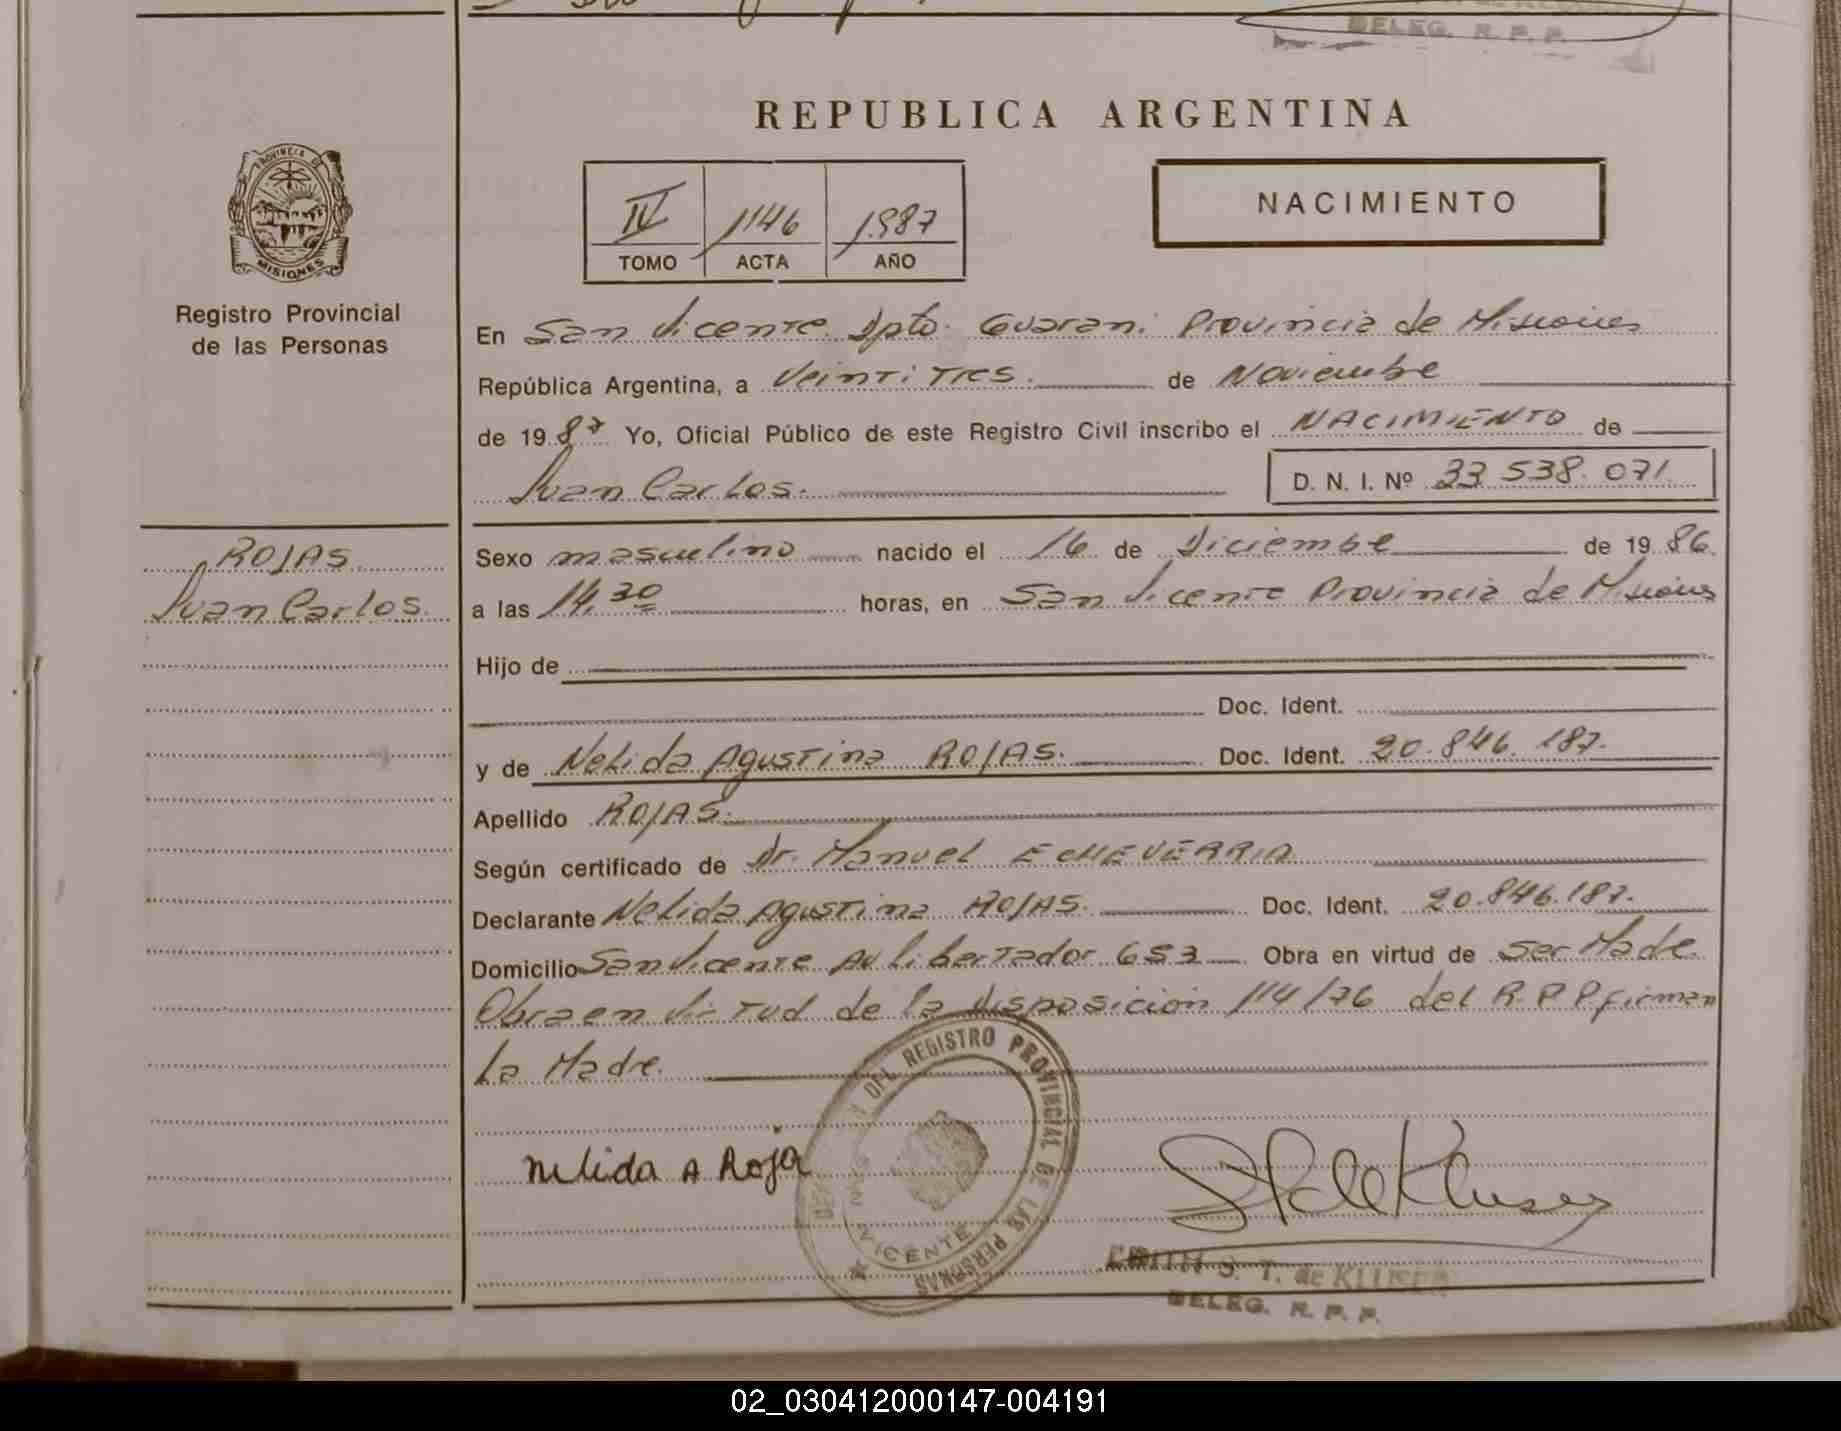 DELEG. R. P. P.
REPUBLICA ARGENTINA
PROVINCIA DE
MISIONES
Registro Provincial
de las Personas
IV 1146 1.987
TOMO ACTA AÑO
NACIMIENTO
En San Vicente Dpto. Guarani Provincia de Misiones
República Argentina, a Veinti Tres. de Noviembre
de 1987 Yo, Oficial Público de este Registro Civil inscribo el NACIMIENTO de
Juan Carlos. D. N. I. Nº 33.538.071.
ROJAS
Juan Carlos.
Sexo masculino nacido el 16 de Diciembre de 1986.
a las 14,30 horas, en San Vicente Provincia de Misiones
Hijo de
Doc. Ident.
y de Nelida Agustina ROJAS. Doc. Ident. 20.846.187.
Apellido ROJAS.
Según certificado de Dr. Manuel ECHEVERRIA
Declarante Nelida Agustina ROJAS. Doc. Ident. 20.846.187.
Domicilio San Vicente Av Libertador 653 Obra en virtud de Ser Madre.
Obra en Virtud de la Disposición 114/76 del R.P.P. firman
La Madre.
DEL REGISTRO PROVINCIAL DE LAS PERSONAS
VICENTE
Nelida A Roja
S T de Kluser
EDITH S. T. de KLUSER
DELEG. R. P. P.
02_030412000147-004191